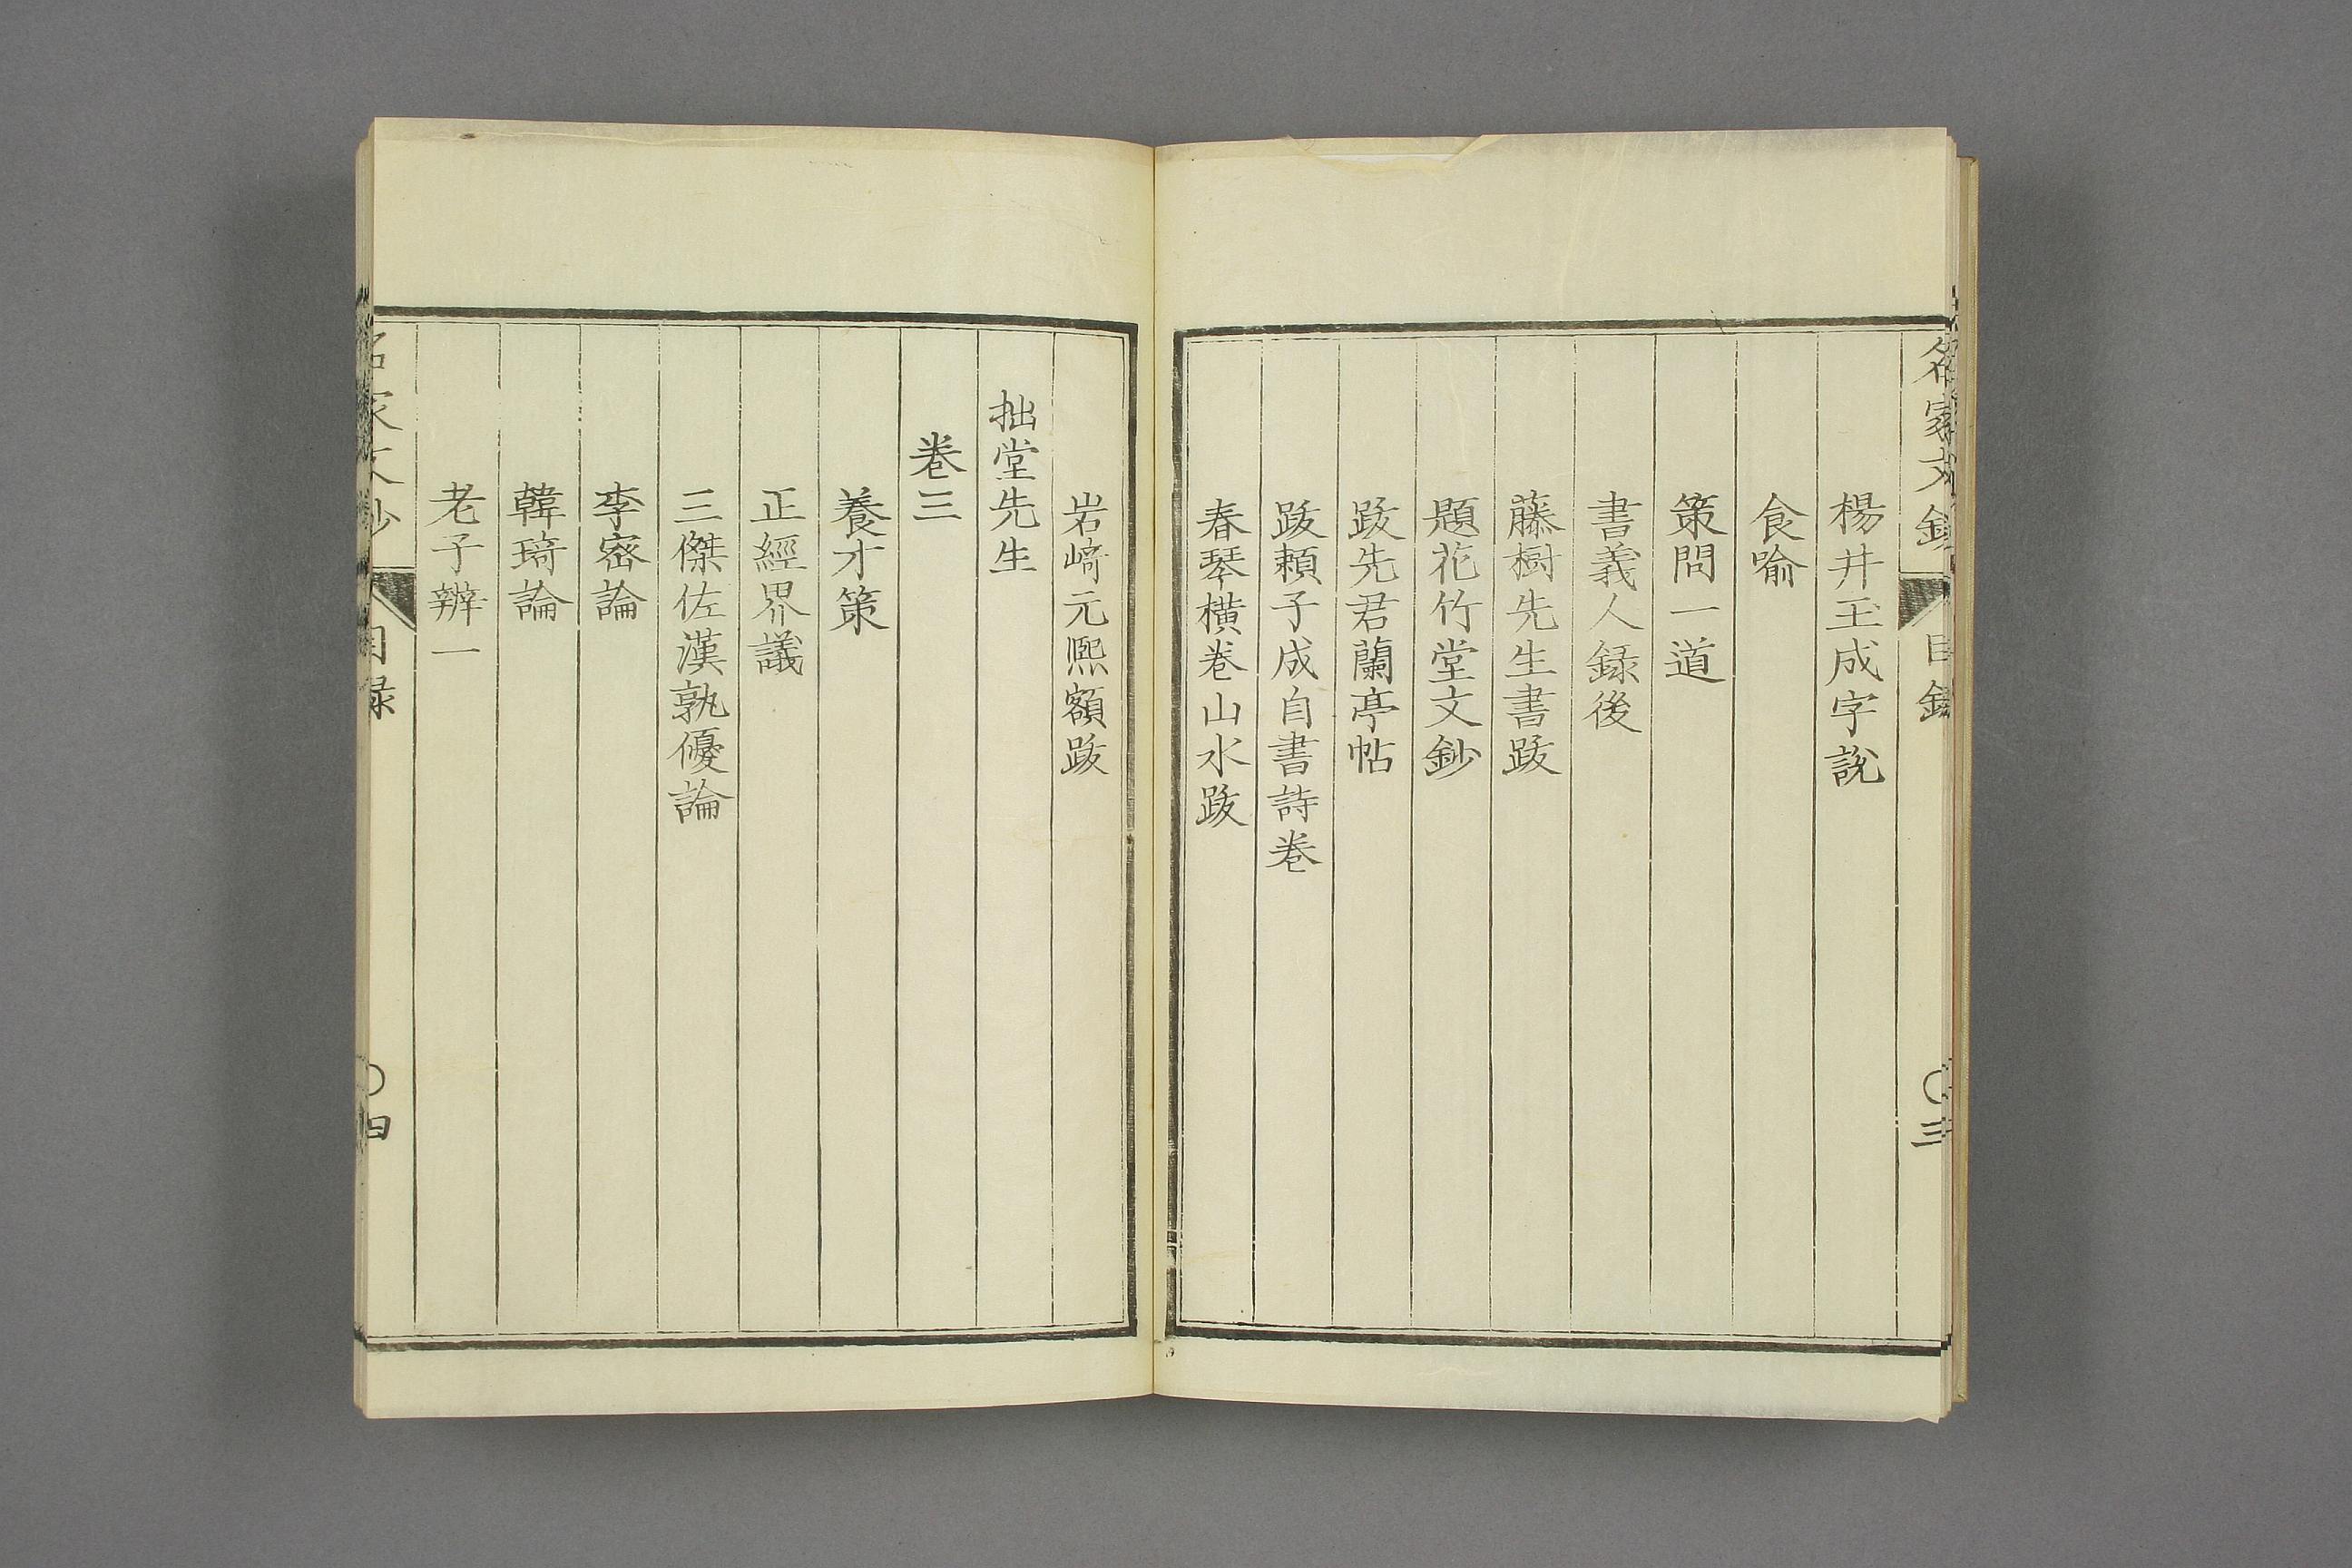 名家文鈔
目録
〇三
楊井玉成字説
食喻
策問一道
書義人録後
藤樹先生書跋
題花竹堂文鈔
跋先君蘭亭帖
跋頼子成自書詩巻
春琴横巻山水跋
岩﨑元熈額跋
拙堂先生
巻三
養才策
正經界議
三傑佐漢孰優論
李宻論
韓琦論
老子辨一
名家文鈔
目録
〇四